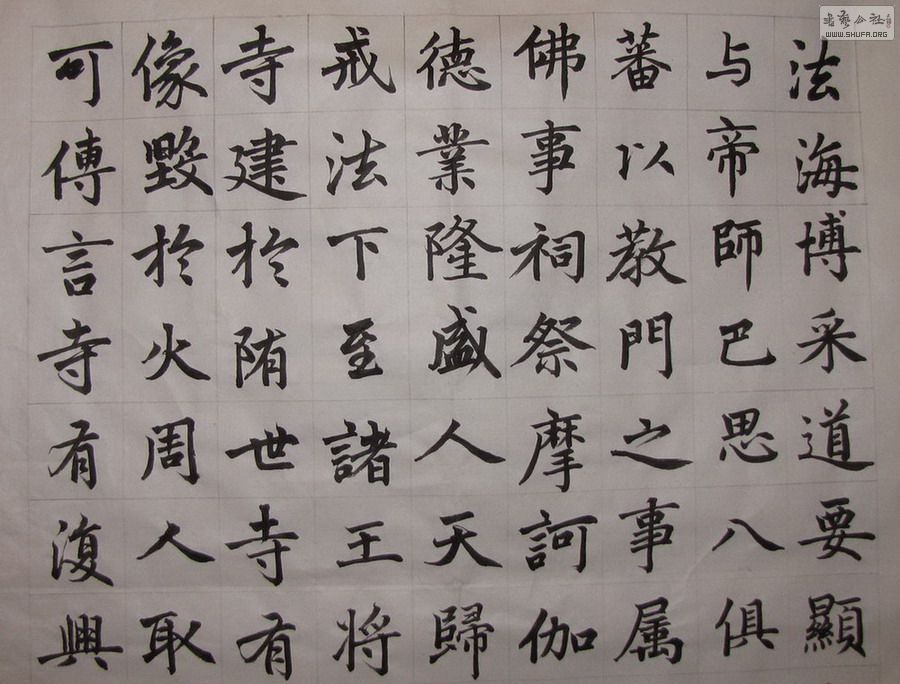 法海博采道要顯
与帝師巴思八俱
蕃以教門之事属
佛事祠祭摩訶伽
德業隆盛人天歸
戒法下至諸王將
寺建於陏世寺有
像毀於火周人取
可傳言寺有復興
书藝公社
WWW.SHUFA.ORG